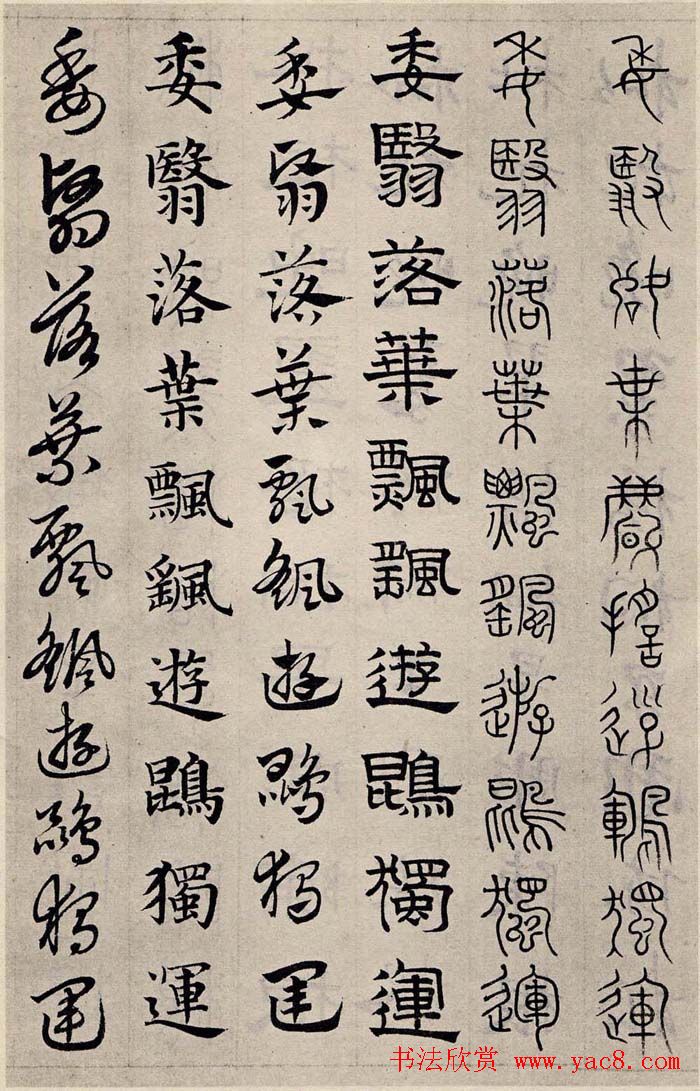 委翳落葉飄颻遊鵾獨運
委翳落葉飄颻遊鵾獨運
委翳落葉飄颻遊鵾獨運
委翳落葉飄颻遊鵾獨運
委翳落葉飄颻遊鵾獨運
委翳落葉飄颻遊鵾獨運
书法欣赏 www.yac8.com